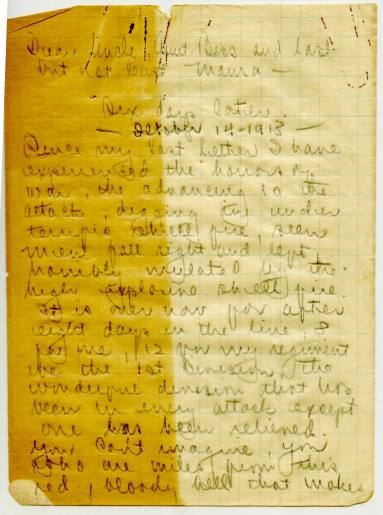 Dear Uncle, Aunt Bess and last
but not least Mama —
Six days later.
— October 14-1918 —
Since my last letter I have
experienced the horrors of
war, the advancing to the
attack, digging in under
terrific shell fire, seen
men fall right and left
horribly mutilated by the
high explosive shell fire.
It is over now for after
eight days in the line, 8
for me, 12 for my regiment
we the 1st Division, the
wonderful division that has
been in every attack except
one has been relieved.
You can't imagine, you
who are miles from this
red, bloody hell that makes